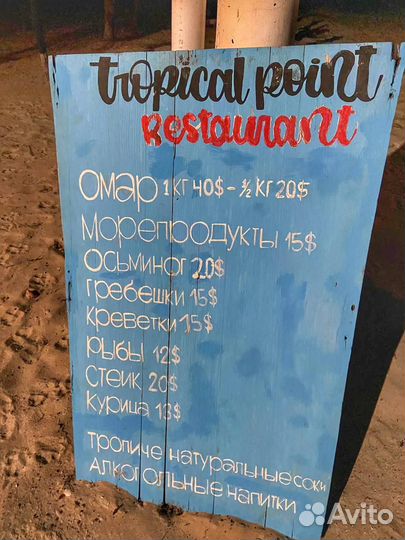 tropical point
Restaurant
Омар 1 кг 40$ - ½ кг 20$
Морепродукты 15$
Осьминог 20$
Гребешки 15$
Креветки 15$
Рыбы 12$
Стейк 20$
Курица 13$
Тропиче натуральные соки
Алкогольные напитки
Avito